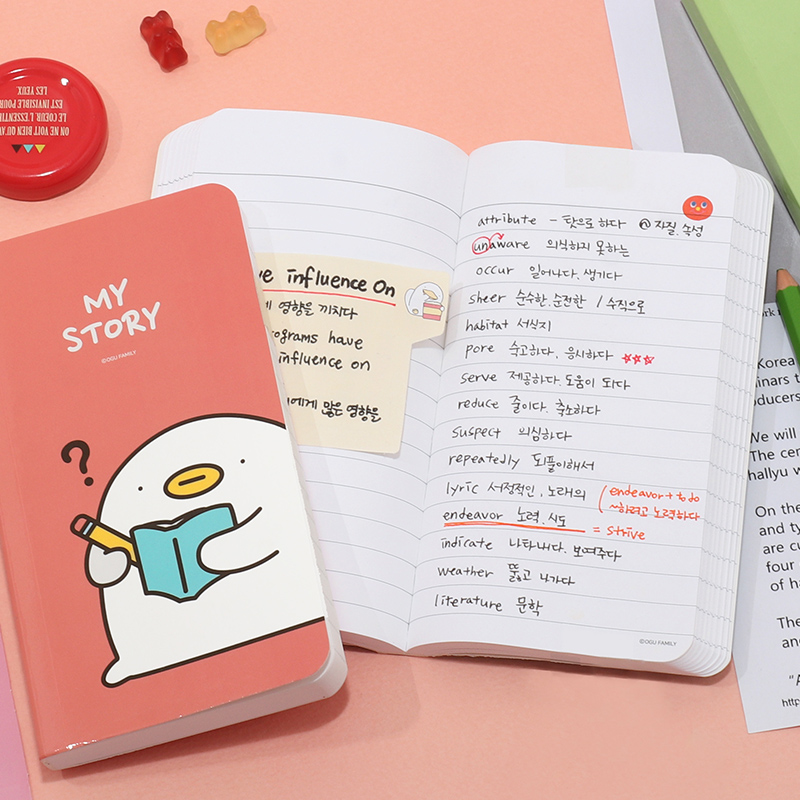 ON NE VOIT BIEN QU'AV
LE COEUR. L'ESSENTIE
EST INVISIBLE POUR
LES YEUX.
MY
STORY
©OGU FAMILY
?
ve influence On
게 영향을 끼치다
ograms have
influence on
에게 많은 영향을
attribute - 탓으로 하다 ⓝ 자질, 속성
unaware 의식하지 못하는
occur 일어나다, 생기다
sheer 순수한, 순전한 / 수직으로
habitat 서식지
pore 숙고하다, 응시하다
serve 제공하다, 도움이 되다
reduce 줄이다, 축소하다
suspect 의심하다
repeatedly 되풀이해서
lyric 서정적인, 노래의
(endeavor + to do
~하려고 노력하다
endeavor 노력, 시도
= strive
indicate 나타내다, 보여주다
weather 뚫고 나가다
literature 문학
©OGU FAMILY
Korea
inars t
oducers
We will
The cen
hallyu w
On the
and ty
are cu
four
of ha
The
and
"A
http